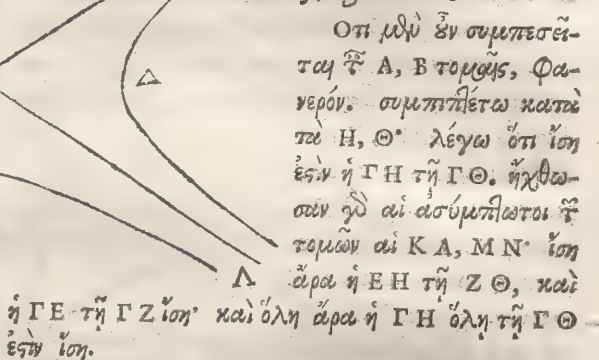 Δ
Ὅτι μὲν οὖν συμπεσεῖ-
ται ταῖς Α, Β τομαῖς, φα-
νερόν. συμπιπτέτω κατὰ
τὰ Η, Θ· λέγω ὅτι ἴση
ἐστὶν ἡ ΓΗ τῇ ΓΘ. ἤχθω-
σαν γὸ αἱ ἀσύμπτωτοι τῶν
τομῶν αἱ ΚΛ, ΜΝ· ἴση
Λ ἄρα ἡ ΕΗ τῇ ΖΘ, καὶ
ἡ ΓΕ τῇ ΓΖ ἴση· καὶ ὅλη ἄρα ἡ ΓΗ ὅλῃ τῇ ΓΘ
ἐστὶν ἴση.